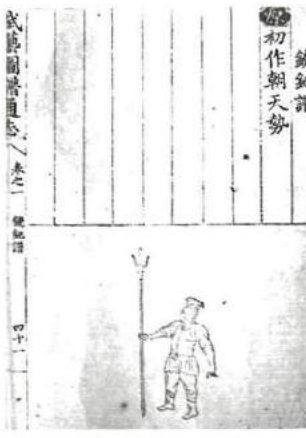 鎲鈀譜
初作朝天勢
武藝圖譜通志 卷之一 鎲鈀譜 四十一